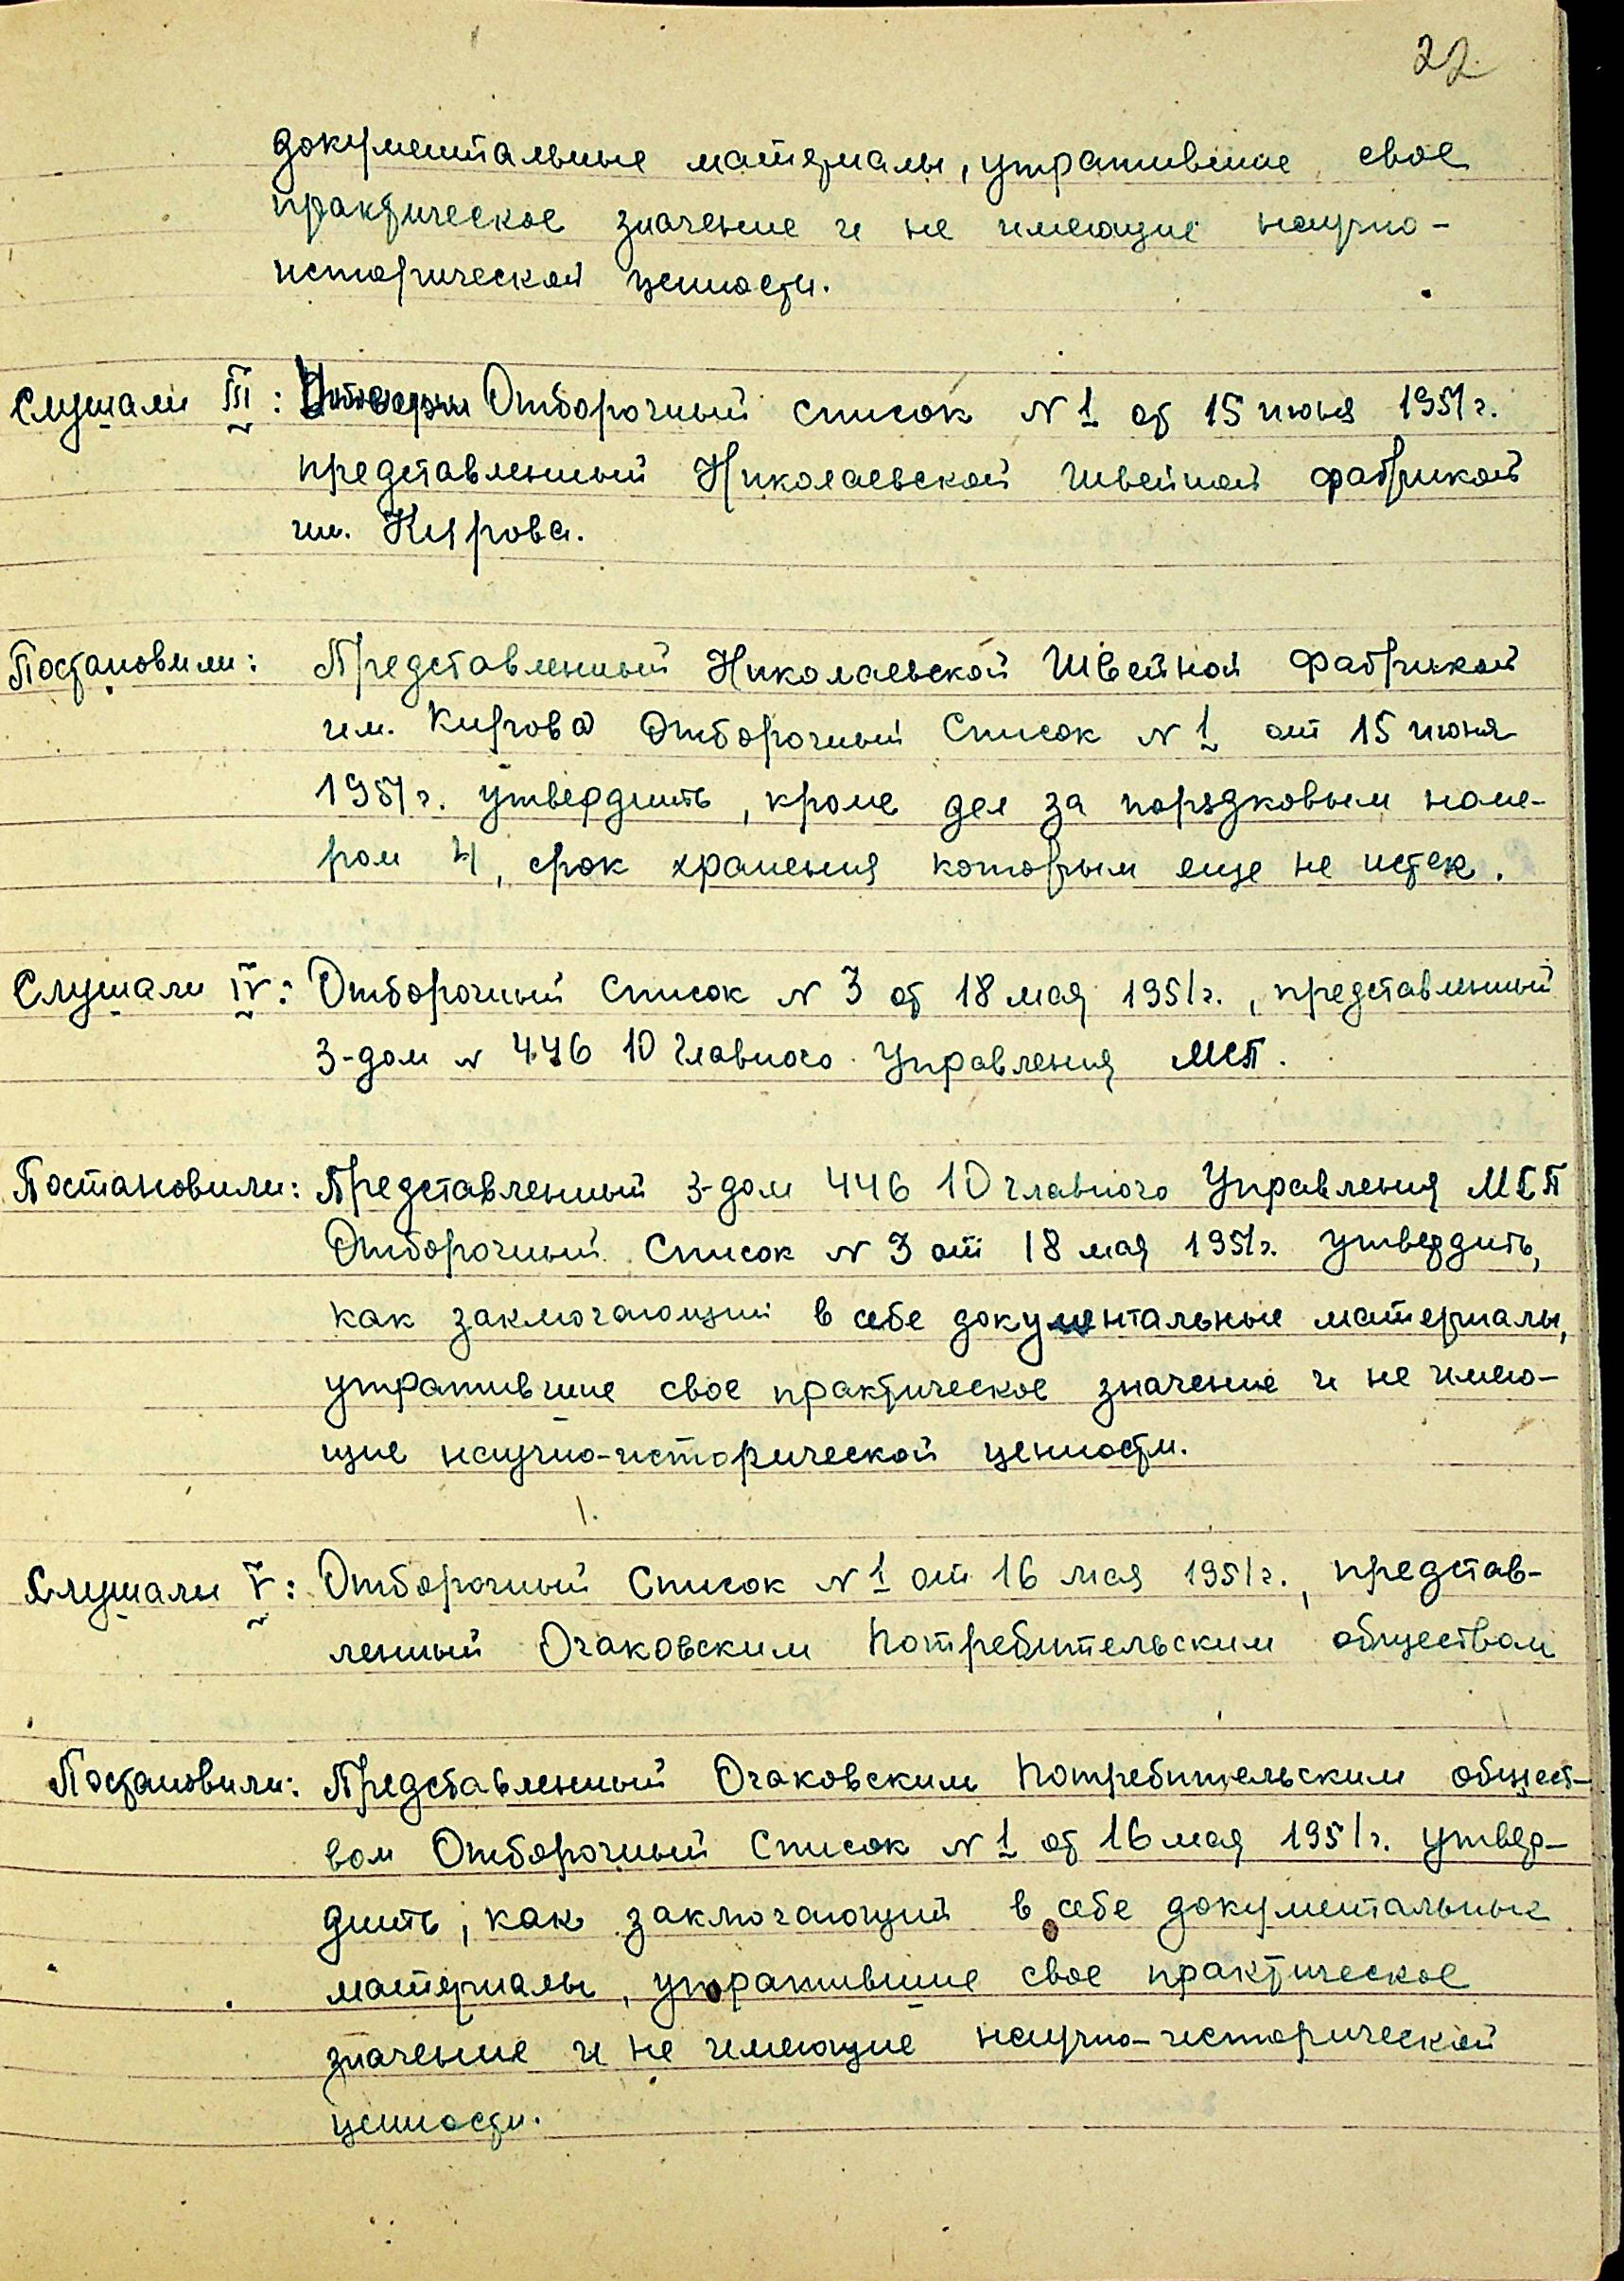 22.
документальные материалы, утратившие свое
практическое значение и не имеющие научно-
исторической ценности.
Слушали III: Отборочный список N 1 от 15 июня 1951 г.
представленный Николаевской Швейной фабрикой
им. Кирова.
Постановили: Представленный Николаевской Швейной Фабрикой
им. Кирова Отборочный Список N 1 от 15 июня
1951 г. утвердить, кроме дел за порядковым номе-
ром 4, срок хранения которым еще не истек.
Слушали IV: Отборочный Список N 3 от 18 мая 1951 г., представленный
З-дом N 446 10 Главного Управления МСП.
Постановили: Представленный З-дом 446 10 Главного Управления МСП
Отборочный Список N 3 от 18 мая 1951 г. утвердить,
как заключающий в себе документальные материалы,
утратившие свое практическое значение и не имею-
щие научно-исторической ценности.
Слушали V: Отборочный Список N 1 от 16 мая 1951 г., представ-
ленный Очаковским Потребительским обществом
Постановили: Представленный Очаковским Потребительским общест-
вом Отборочный Список N 1 от 16 мая 1951 г. утвер-
дить, как заключающий в себе документальные
материалы, утратившие свое практическое
значение и не имеющие научно-исторической
ценности.